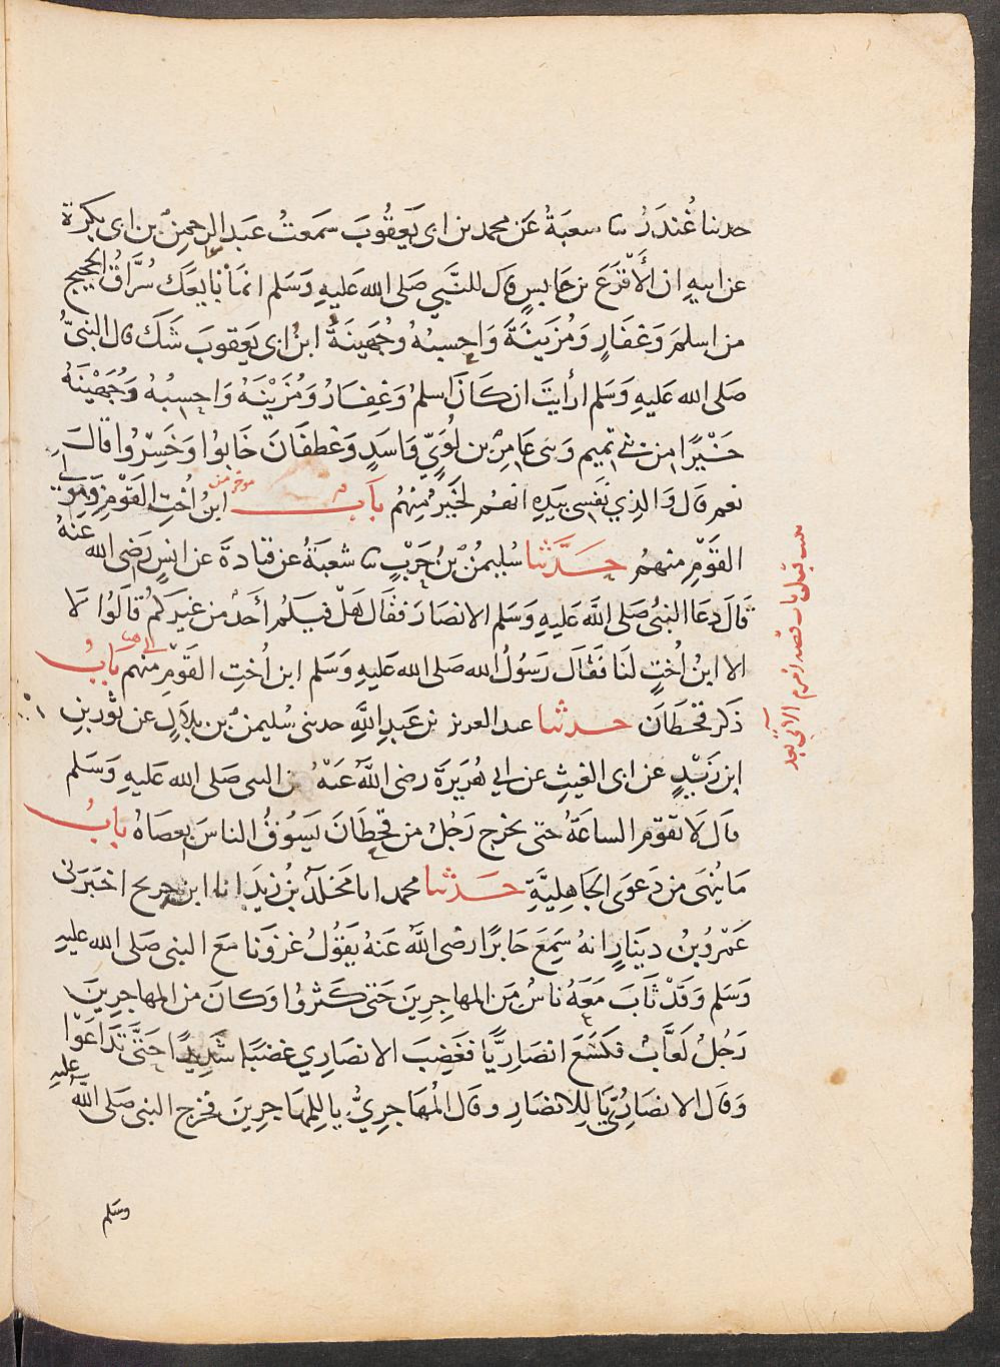 حدثنا غُندَرُ ثنا شعبَةُ عَن محمد بن ابى يَعقُوبَ سَمعتُ عَبدَ الرحمنِ بن ابى بكرة
عن ابيهِ ان الأَقرَعَ بن حَابسٍ قال للنَّبي صَلى الله عَليهِ وَسَلم انمَا بَايعَكَ سُرَّاقُ الحجيج
من اسلمَ وَغفَارٍ وَمُزَينَةَ وَاحسبُهُ وَجُهَينَةَ ابنُ ابى يَعقوبَ شَكَ قال النبىُّ
صَلى الله عَليهِ وَسَلم ارأيتَ ان كانَ اسلمُ وَغِفَارُ وَمُزَيْنَهُ وَاحسِبُهُ وَجُهَيْنَهُ
خَيْرًا من بنى تميم وَبنى عَامِرِ بن لُوَيّ وَاسَدٍ وَغَطفَانَ خَابُوا وَخَسِرُوا قالَ
نعم قال وَالذِي نَفسى بيَدِهِ انهُم لخَيرٌ مِنهُم بَاب ابنُ اُختِ القَوْمِ وَمَوْلى
القَوْمِ منهُم حَدَّثَنا سُليمنُ بنُ حَرْبٍ ثنا شعبَةُ عن قتادةَ عن انسٍ رَضى الله عَنهُ
قالَ دعَا النبُى صَلى اللَّه عَليهِ وَسَلم الانصَارَ فقَال هَل فيكُم أحَدٌ من غيركُم قالوُا لاَ
الا ابنُ اُختٍ لنَا فقالَ رَسُولُ الله صَلى الله عَليهِ وَسَلم ابن اُختِ القَوْمِ منهم بَابُ
ذكر قحطَانَ حدثنا عبد العزيز بن عَبدِ اللَّهِ حدثنى سُليمنُ بن بلالٍ عن ثورِ بنِ
ابن زَيْدٍ عن ابى الغيثِ عن ابي هُرَيرَةَ رضى اللَّه عَنهُ عن النبى صَلى الله عَليهِ وَسَلم
قال لاَ تقوم الساعَةُ حتى يخرج رَجُلٌ من قحطَانَ يَسُوقُ الناسَ بعصَاهُ بابُ
مَا يُنهَى من دَعوَى الجَاهِليَّةِ حَدثنا محمد انا مَخلَدُ بنُ يزيدَ انا ابن جريج اخبَرَنى
عَمرُو بنُ دينَارٍ انهُ سَمِعَ جَابرًا رضى اللَّهُ عَنهُ يَقوُلُ غزَونا مَعَ النبى صَلى الله عَليهِ
وَسَلم وَقَدْ ثَابَ مَعَهُ ناسٌ مِنَ المهاجرِينَ حَتى كَثرُوا وَكانَ من المهاجرينَ
رَجُلٌ لعَّابٌ فكسَعَ انصَارِيًّا فَغَضِبَ الانصَارِي غضبًا شَدِيدًا حَتَّى تَدَاعَوْا
وَقال الانصَارِيُّ يَا لِلانصَارِ وقال المُهَاجرِيُّ يا لِلمهَاجرِينَ فخرج النبى صَلى اللَّهُ عليه
وسَلم